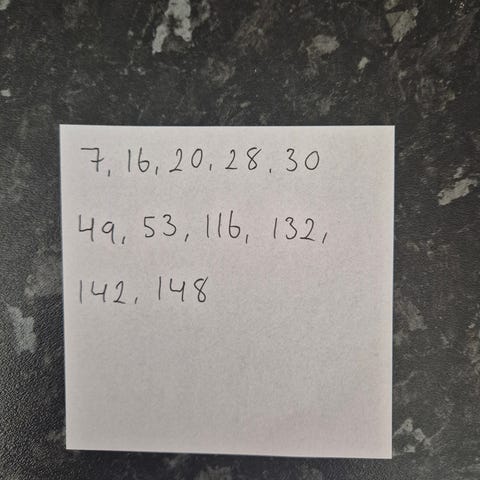 7, 16, 20, 28, 30
49, 53, 116, 132,
142, 148